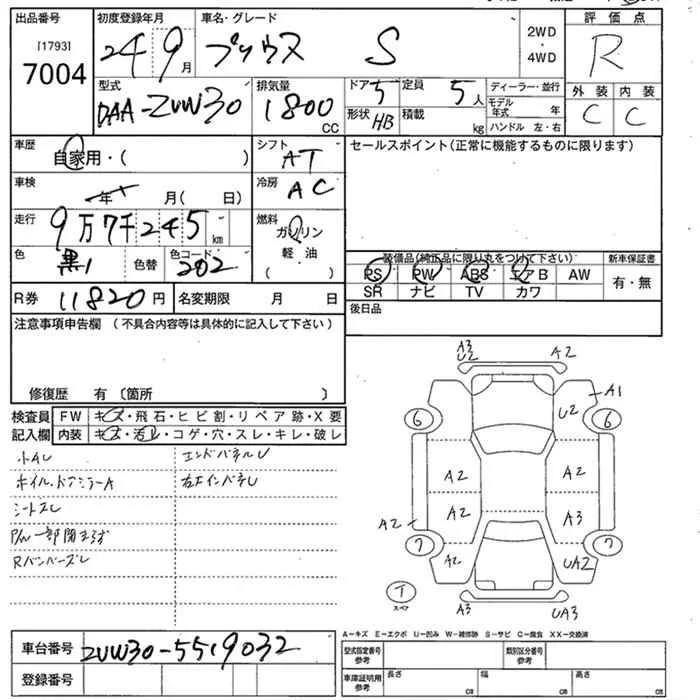 出品番号 初度登録年月 車名・グレード 評価点
[1793] 24 9月 プリウス S 2WD・4WD R
7004
型式 排気量 ドア 定員 ディーラー・並行 外装 内装
DAA-ZVW30 1800CC 5 5人 モデル年式 年 C C
形状 HB 積載 kg ハンドル 左・右
車歴 自家用・( ) シフト AT セールスポイント(正常に機能するものに限ります)
車検 年 月( 日) 冷房 AC
走行 9万7千245km 燃料 ガソリン
軽・油
( )
色 黒 色替 色コード 202 装備品(純正品に限り丸をつけて下さい) 新車保証書
PS PW ABS エアB AW 有・無
R券 11820円 名変期限 月 日 SR ナビ TV カワ
注意事項申告欄 (不具合内容等は具体的に記入して下さい) 後日品
修復歴 有 〔箇所 〕
検査員 FW キズ・飛石・ヒビ割・リペア跡・X要
記入欄 内装 キズ・汚レ・コゲ・穴・スレ・キレ・破レ
小AU エンドパネルU
ホイル、ドアミラーA 右エインパネU
シートズレ
P/W一部開まらず
Rバンパーズレ
A3
U2 A2
A1
U2
6 6
A2 A2
A2 A3
A2
7 7
A2 UA2
T
スペア
A3 UA3
A−キズ E−エクボ U−凹み W−補修跡 S−サビ C−腐食 XX−交換済
車台番号 ZVW30-5519032 型式指定番号 参考 類別区分番号 参考
登録番号 車庫証明用 参考 長さ cm 幅 cm 高さ cm